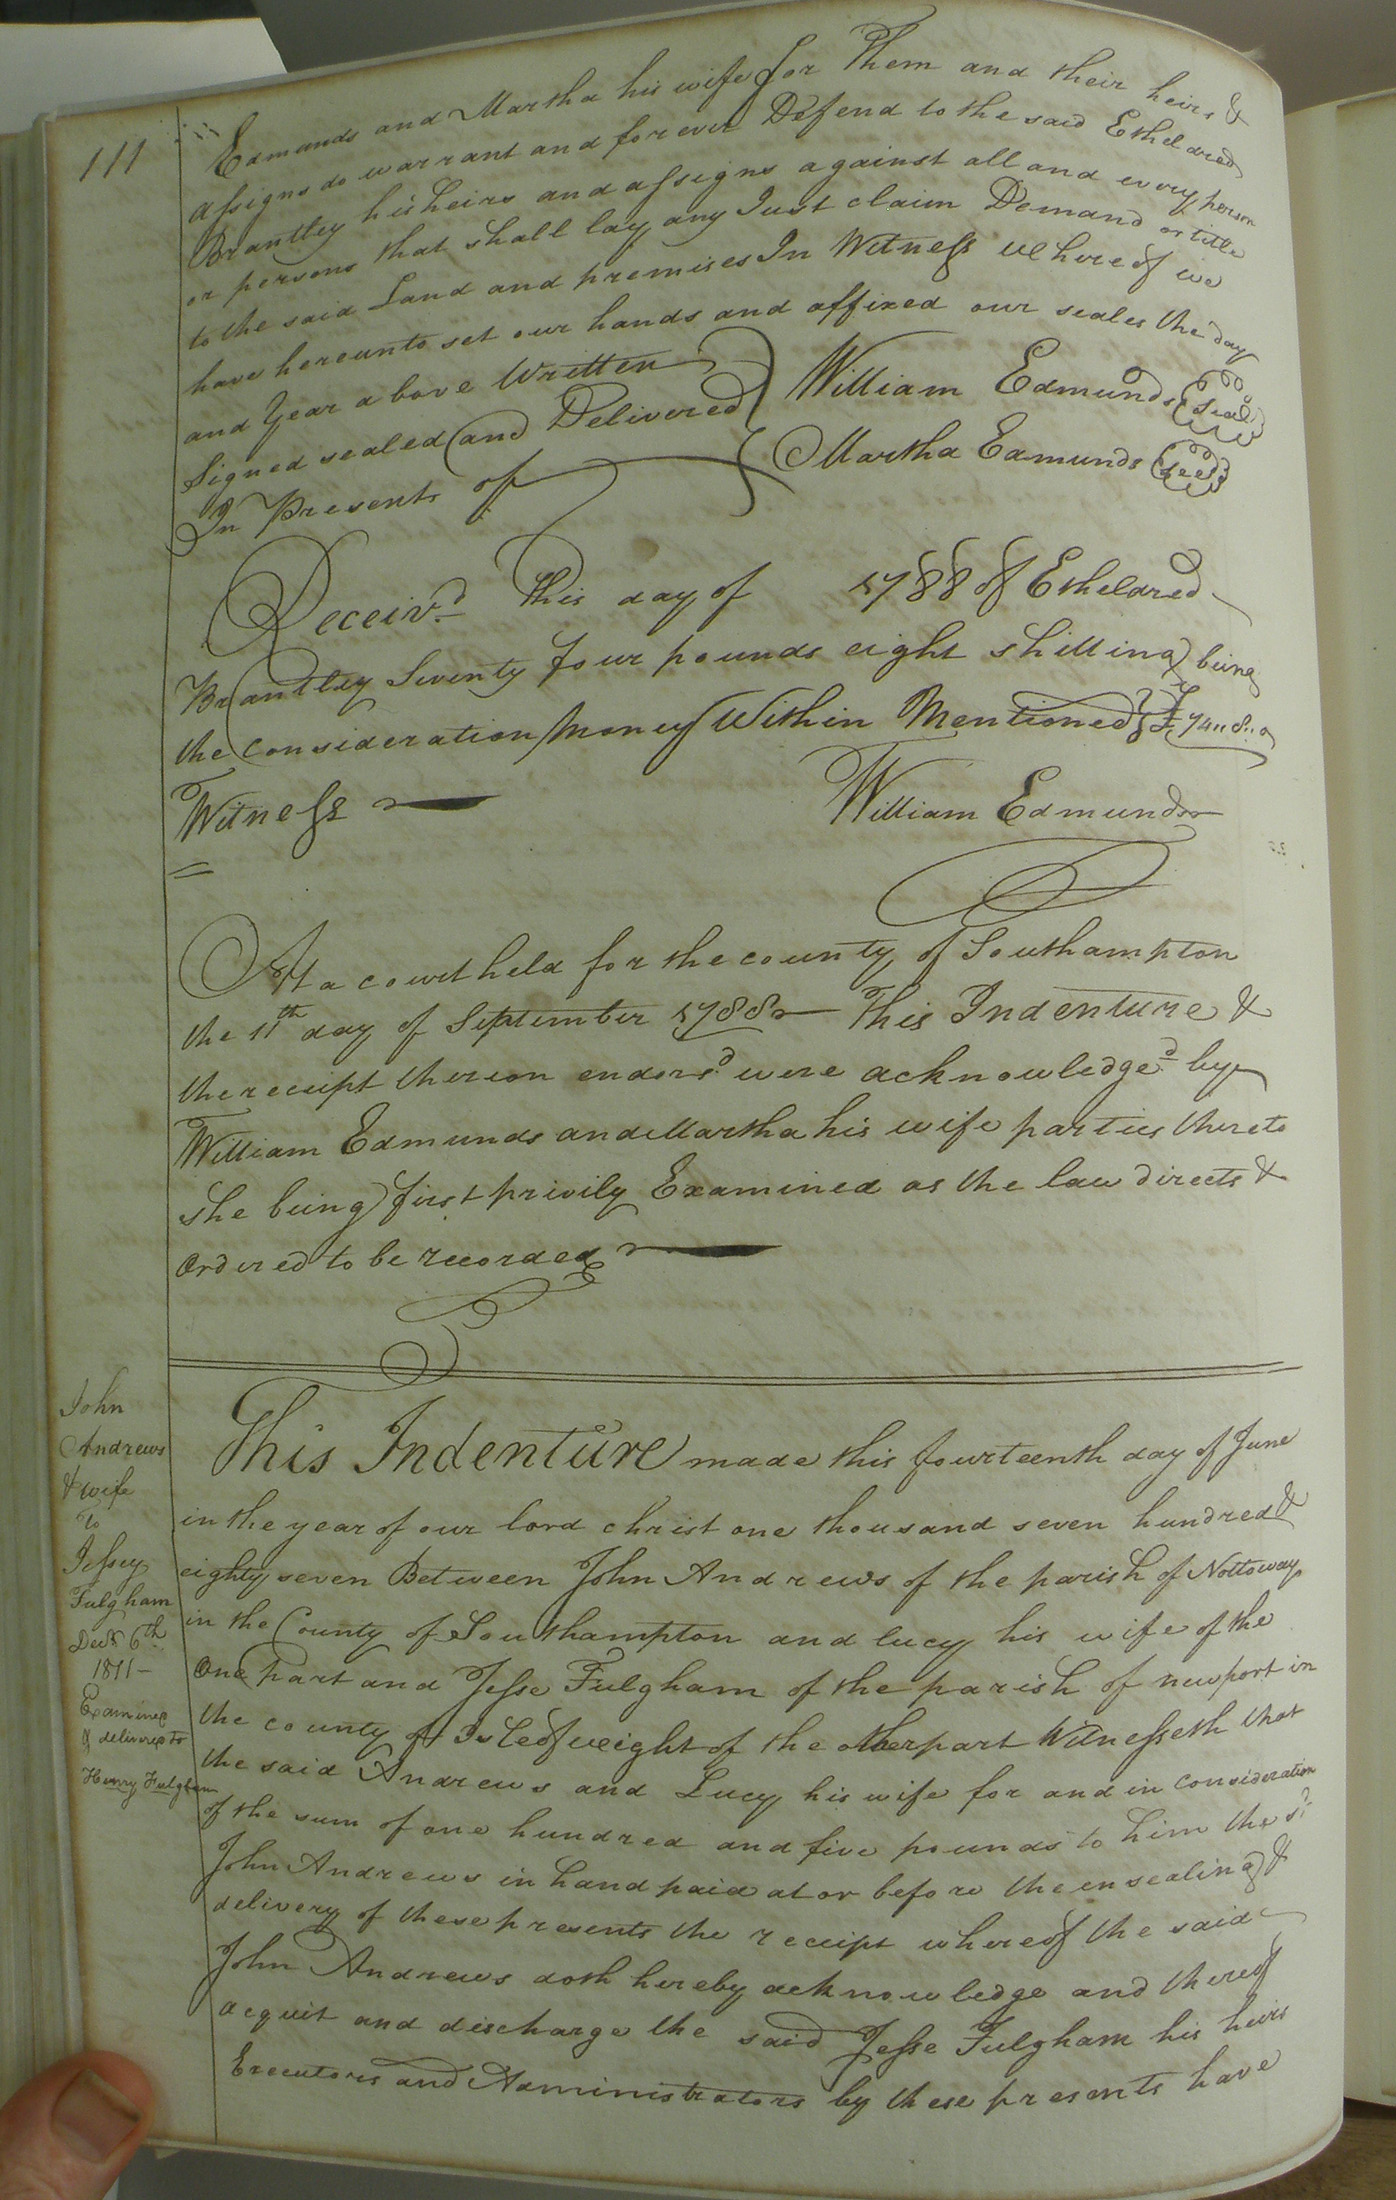 111
Edmunds and Martha his wife for Them and their heirs &
assigns do warrant and forever Defend to the said Etheldred
Brantley his heirs and assigns against all and every person
or persons that shall lay any Just claim Demand or title
to the said Land and premises In Witness whereof we
have hereunto set our hands and affixed our seales the day
and Year above Written
Signed sealed and Delivered
In Presents of
William Edmunds (seal)
Martha Edmunds (seal)
Receiv.d This day of 1788 of Etheldred
Brantley Seventy four pounds eight shilling being
the consideration Money Within Mentioned £74..8..0
Witness
William Edmunds
At a court held for the county of Southampton
the 11th day of September 1788 This Indenture &
the receipt thereon endors.d were acknowledge.d by
William Edmunds and Martha his wife parties thereto
she being first privily Examined as the law directs &
Ordered to be recorded
John
Andrews
& wife
To
Jessey
Fulgham
Decr 6th
1811 -
Examined
& delivered to
Henry Fulgham
This Indenture made this fourteenth day of June
in the year of our lord christ one thousand seven hundred &
eighty seven Between John Andrews of the parish of Nottoway
in the County of Southampton and lucy his wife of the
One part and Jesse Fulgham of the parish of newport in
the county of Isle of weight of the other part Witnesseth that
the said Andrews and Lucy his wife for and in consideration
of the sum of one hundred and five pounds to him the s.d
John Andrews in hand paid at or before the ensealing &
delivery of these presents the receipt whereof the said
John Andrews doth hereby acknowledge and thereof
acquit and discharge the said Jesse Fulgham his heirs
Executors and Administrators by these presents have